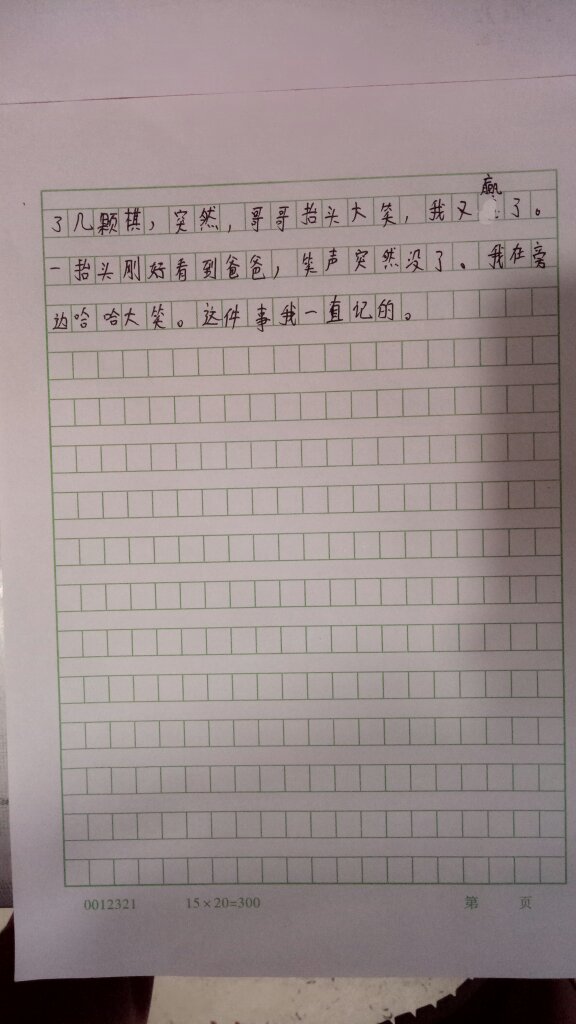 赢
了几颗棋，突然，哥哥抬头大笑，我又了。
一抬头刚好看到爸爸，笑声突然没了。我在旁
边哈哈大笑。这件事我一直记的。
0012321 15×20=300 第 页